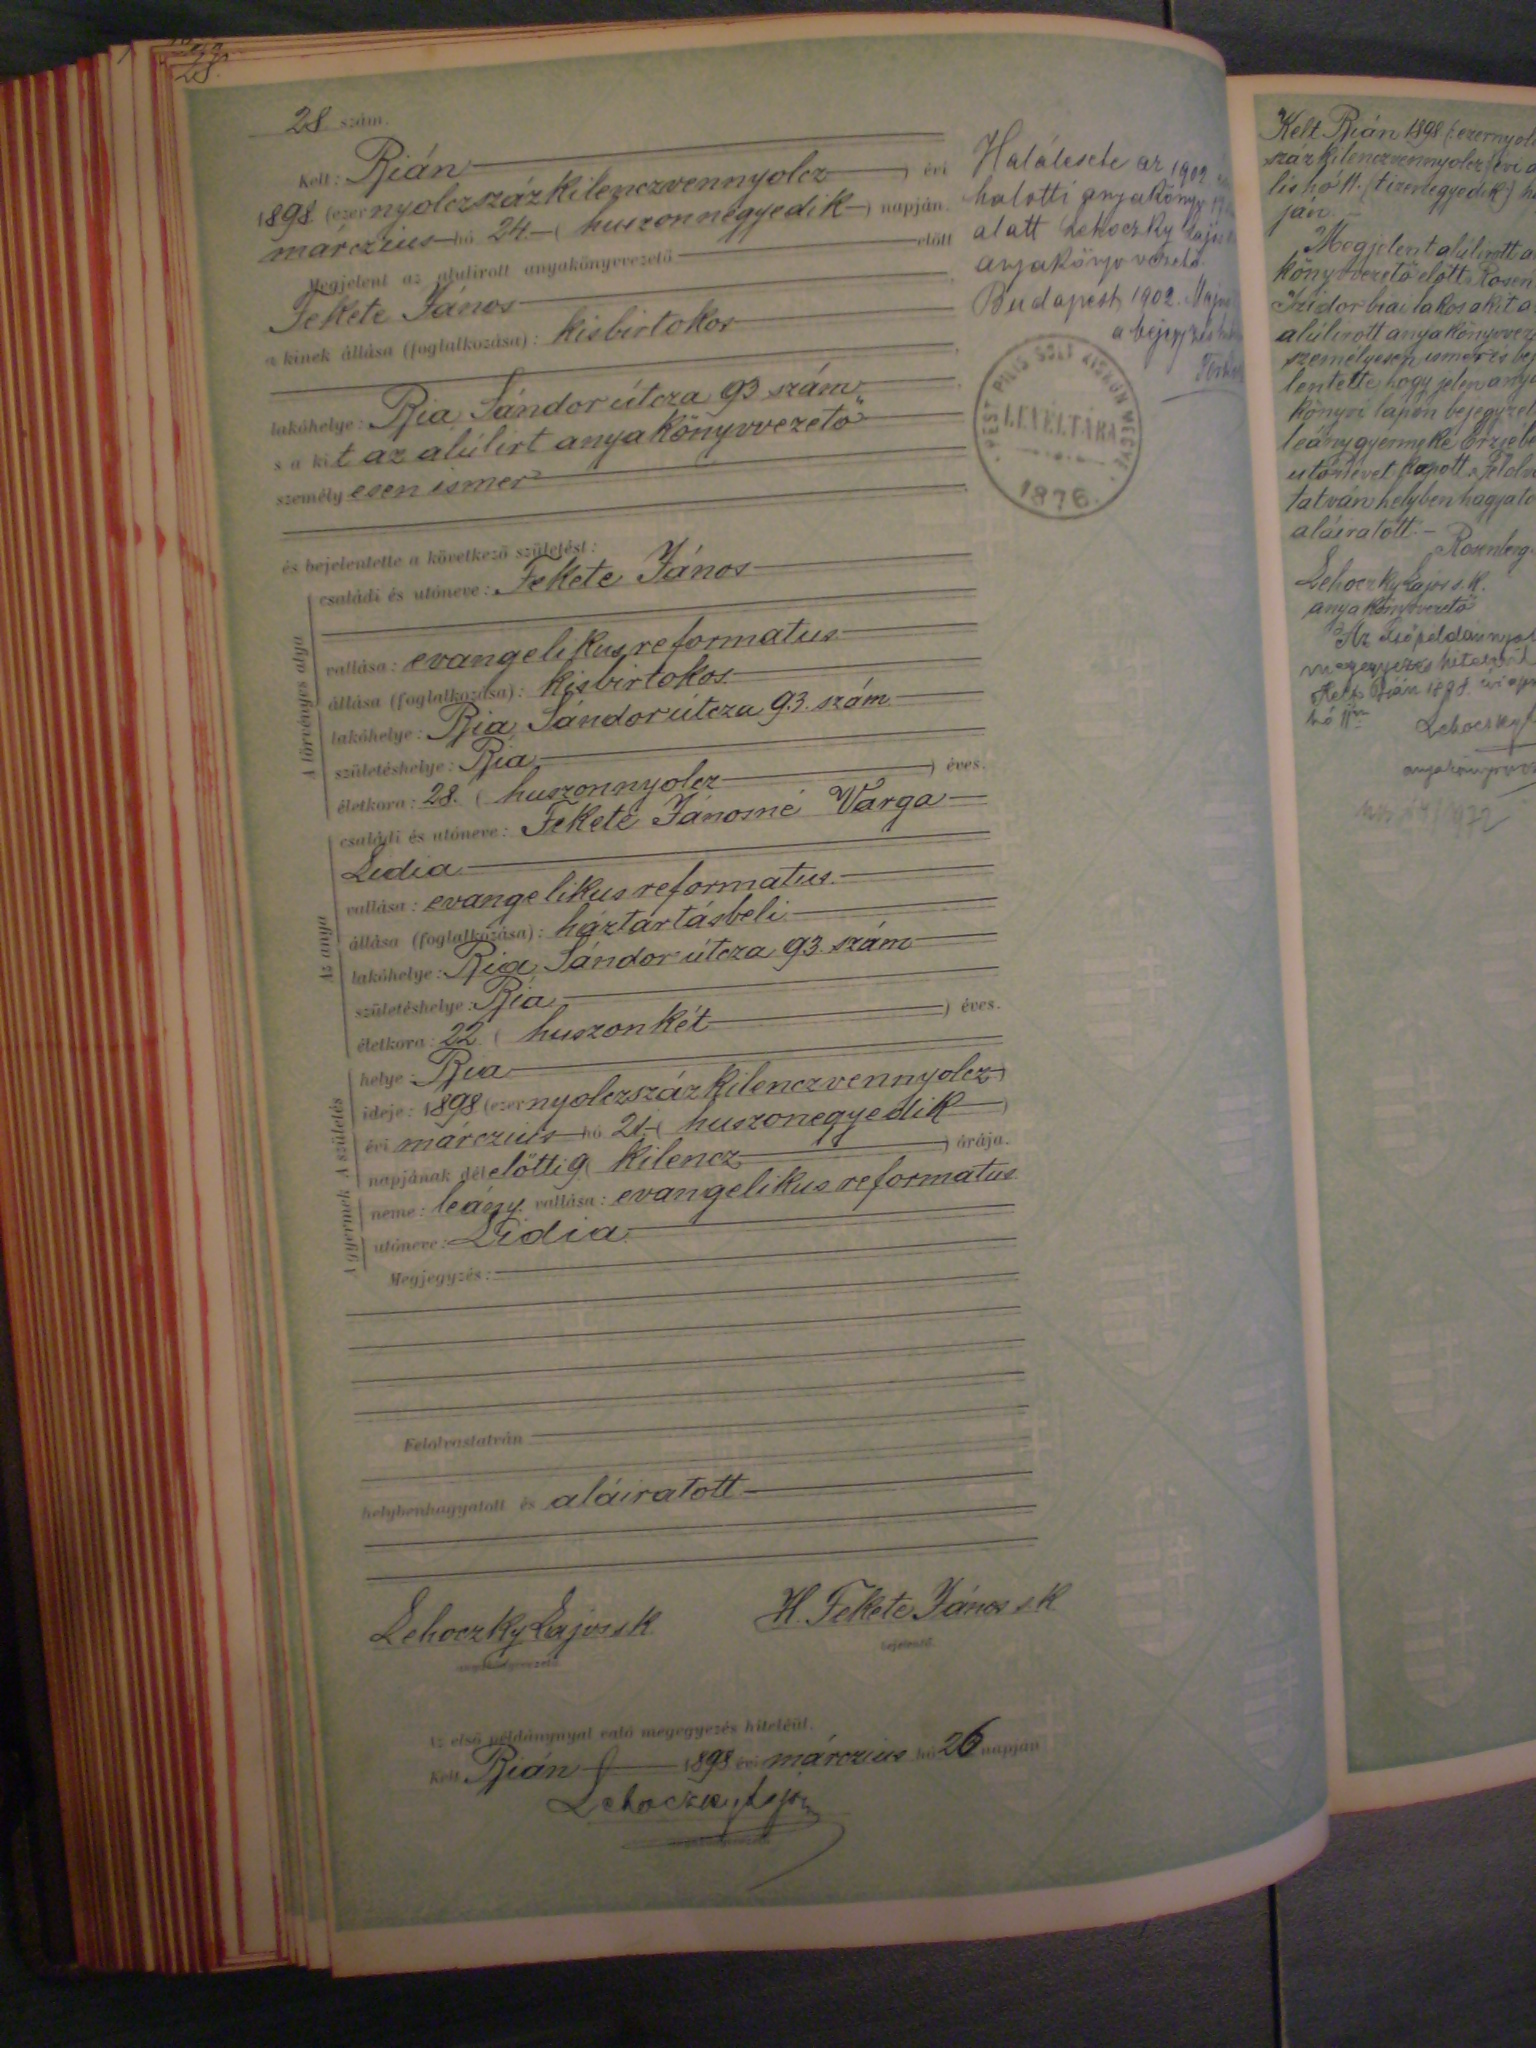 28.
28 szám.
Kelt: Bián
1898. (ezernyolczszázkilenczvennyolcz) évi
márczius hó 24. (huszonnegyedik) napján.
Megjelent az alulirott anyakönyvvezető előtt
Fekete János
a kinek állása (foglalkozása): kisbirtokos
lakóhelye: Bia, Sándor útcza 93 szám
s a kit az alúlirt anyakönyvvezető
személyesen ismer
és bejelentette a következő születést:
A törvényes atya
családi és utóneve: Fekete János
vallása: evangelikus reformatus
állása (foglalkozása): kisbirtokos
lakóhelye: Bia, Sándor útcza 93. szám
születéshelye: Bia
életkora: 28. (huszonnyolcz) éves.
Az anya
családi és utóneve: Fekete Jánosné Varga
Lidia
vallása: evangelikus reformatus.
állása (foglalkozása): háztartásbeli
lakóhelye: Bia, Sándor útcza 93. szám
születéshelye: Bia
életkora: 22 (huszonkét) éves.
A születés
helye: Bia
ideje: 1898 (ezernyolczszázkilenczvennyolcz)
évi márczius hó 21. (huszonegyedik)
napjának délelőtti 9 (kilencz) órája.
A gyermek
neme: leány. vallása: evangelikus reformatus
utóneve: Lidia
Megjegyzés:
Felolvastatván
helybenhagyatott és aláiratott
Lehoczky Lajos sk
anyakönyvvezető
H. Fekete János sk
bejelentő.
Az első példánynyal való megegyezés hiteléül.
Kelt Bián 1898 évi márczius hó 26 napján
Lehoczky Lajos
Halálesete az 1902
halotti anyakönyv
alatt Lehoczky Lajos
anyakönyvvezető
Budapest, 1902.
a bejegyzés
PEST PILIS SOLT KISKUN MEGYE
LEVÉLTÁRA
1876.
Kelt Bián 1898 (ezernyolcz
száz kilenczvennyolcz) évi
lis hó 11. (tizenegyedik)
ján.
Megjelent alúlirott a
könyvvezető előtt Rosen
Izidor biai lakos a kit a
alúlirott anyakönyvvez
személyesen ismer és bej
lentette, hogy jelen anya
könyvi lapon bejegyzet
leánygyermeke Erzsébe
utónevet kapott. Felolv
tatván helybenhagyato
aláiratott.
Rosenberg
Lehoczky Lajos s.k.
anyakönyvvezető
Az első példánnyal
megegyezés hiteléül
Kelt Bián 1898. évi apr
hó 11én
Lehoczky
anyakönyvvez